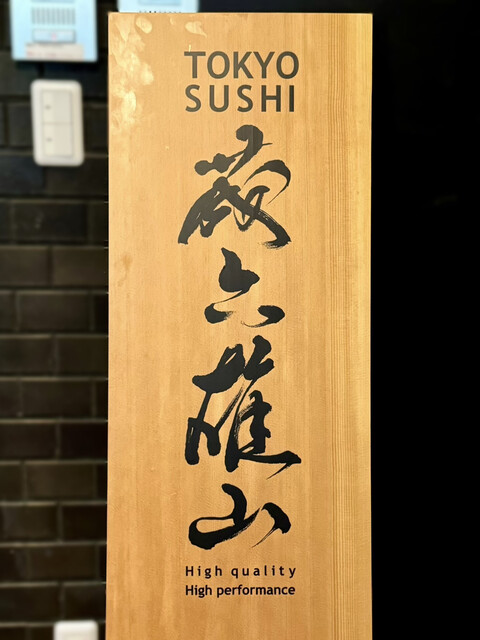 TOKYO
SUSHI
蔵六雄山
High quality
High performance